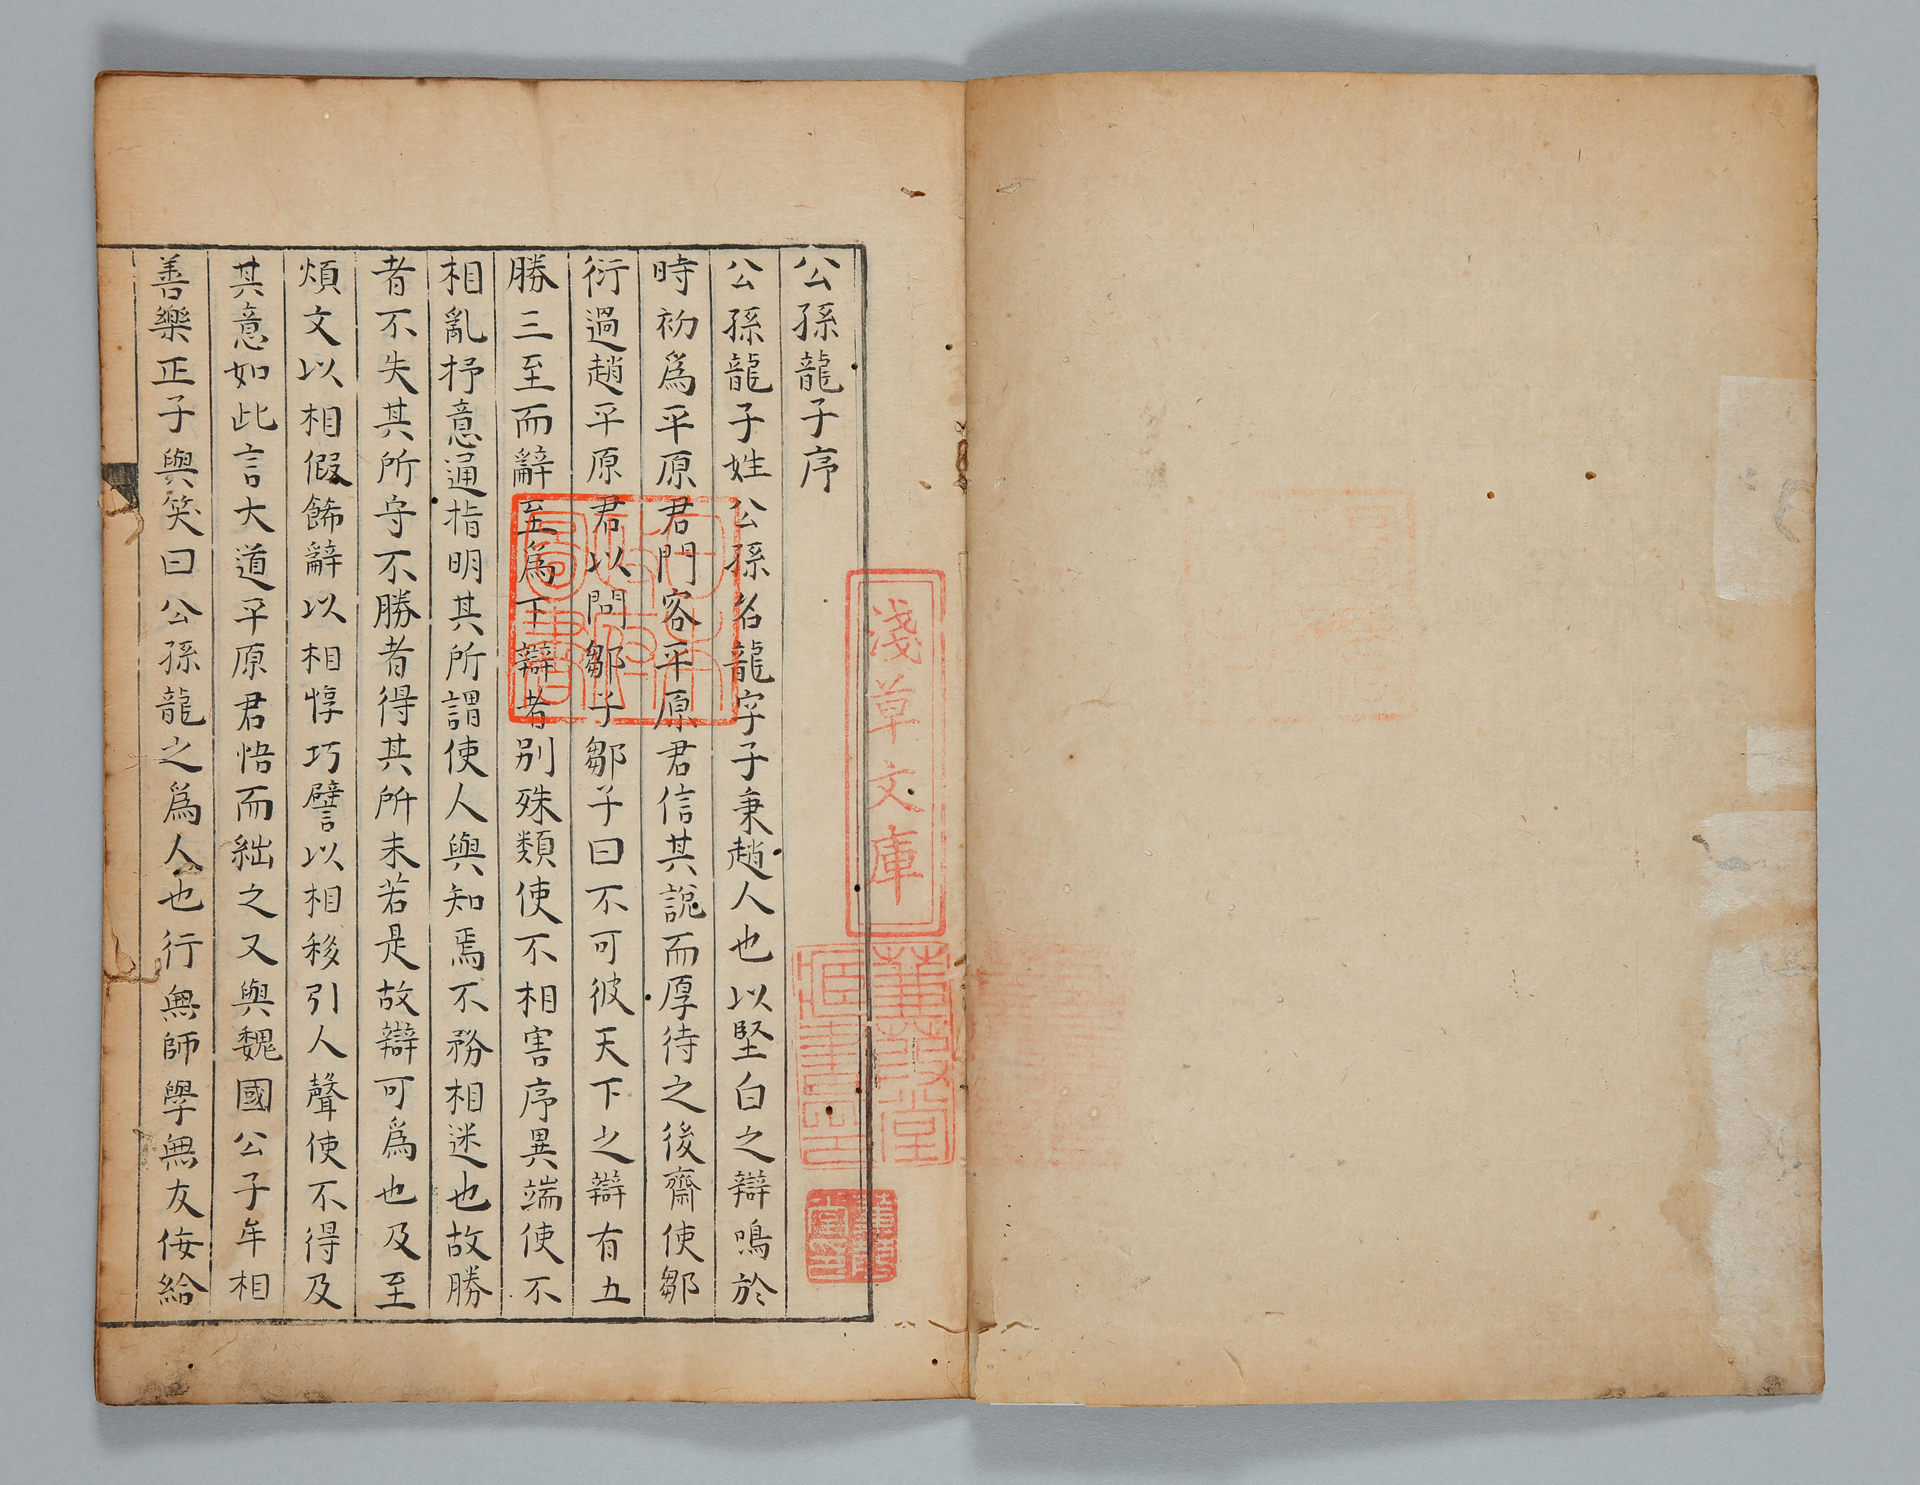 公孫龍子序
公孫龍子姓公孫名龍字子秉趙人也以堅白之辯鳴於
時初為平原君門客平原君信其說而厚待之後齋使鄒
衍過趙平原君以問鄒子鄒子曰不可彼天下之辯有五
勝三至而辭至為下辯者別殊類使不相害序異端使不
相亂抒意通指明其所謂使人與知焉不務相迷也故勝
者不失其所守不勝者得其所未若是故辯可為也及至
煩文以相假餙辭以相惇巧譬以相移引人聲使不得及
其意如此言大道平原君悟而絀之又與魏國公子牟相
善樂正子與笑曰公孫龍之為人也行無師學無友佞給
淺草文庫